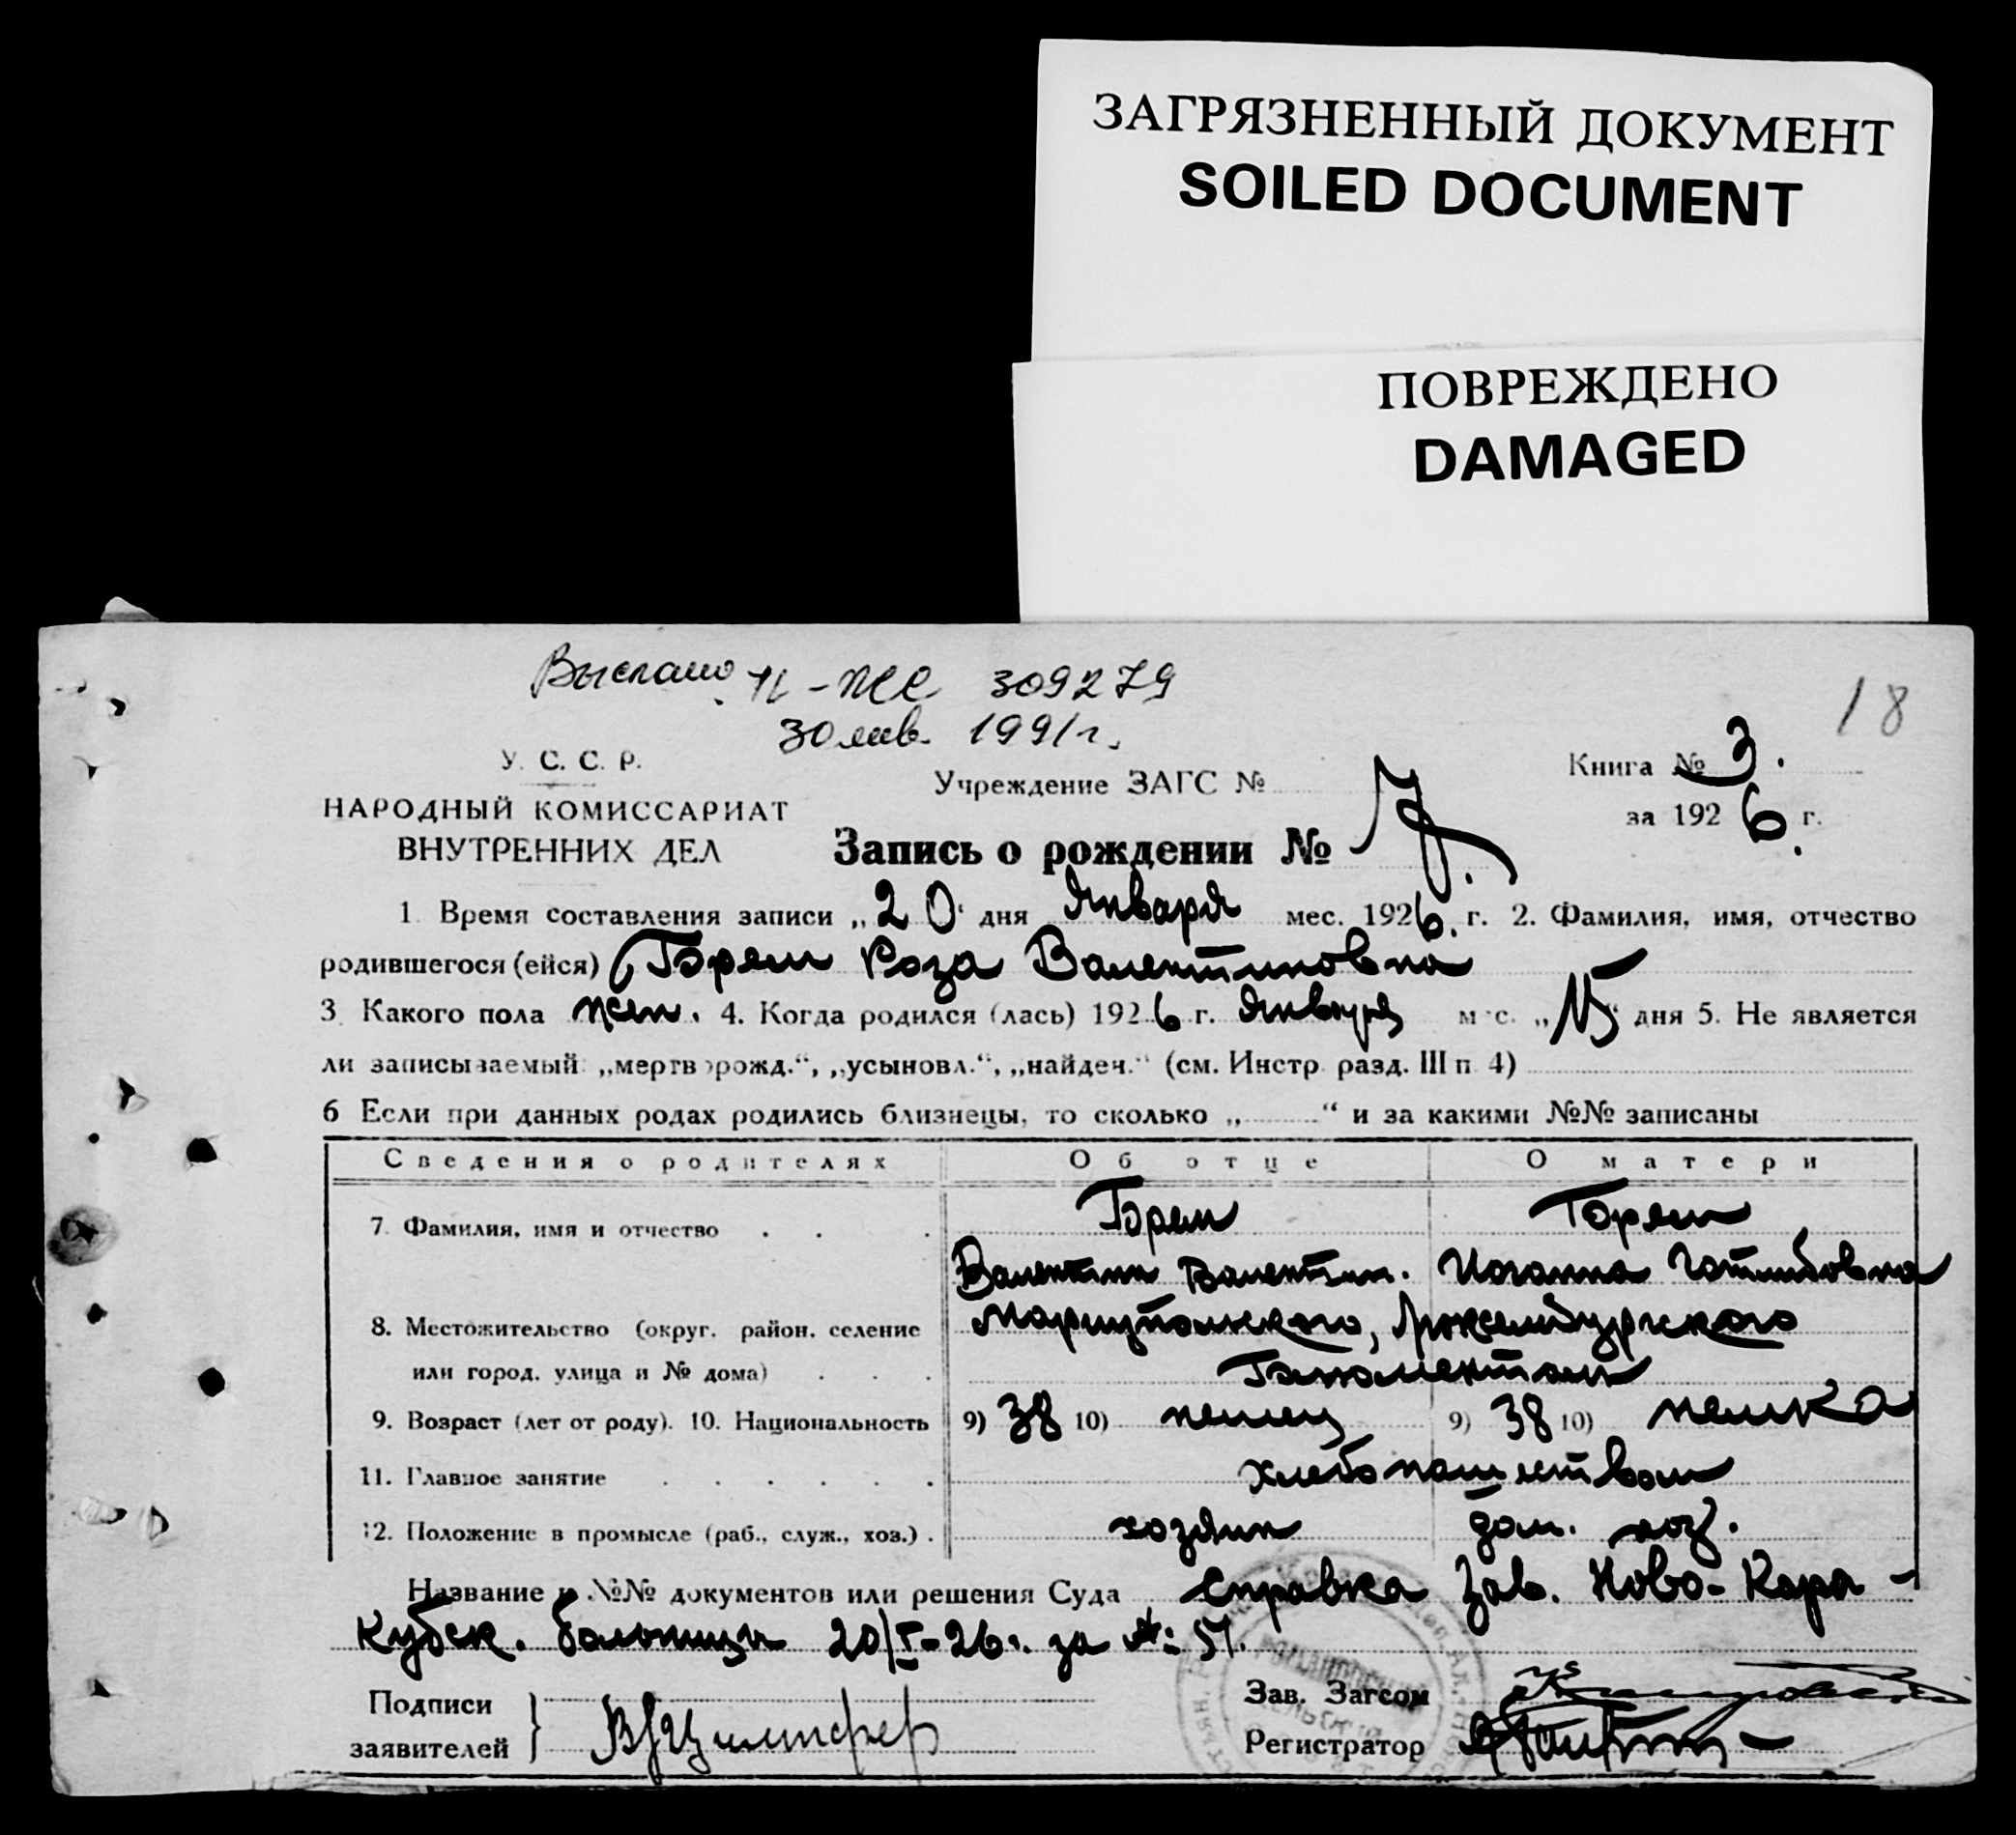 ЗАГРЯЗНЕННЫЙ ДОКУМЕНТ
SOILED DOCUMENT
ПОВРЕЖДЕНО
DAMAGED
Выслано 309279
30 янв. 1991 г.
18
У. С. С. Р.
НАРОДНЫЙ КОМИССАРИАТ
ВНУТРЕННИХ ДЕЛ
Учреждение ЗАГС №
Книга № 3.
за 1926 г.
Запись о рождении № 7.
1. Время составления записи „20“ дня Января мес. 1926. г. 2. Фамилия, имя, отчество
родившегося (ейся) Роза Валентиновна
3. Какого пола жен. 4. Когда родился (лась) 1926 г. Января мес. „15“ дня 5. Не является
ли записываемый: „мертворожд.“, „усыновл.“, „найден.“ (см. Инстр. разд. III п. 4)
6 Если при данных родах родились близнецы, то сколько „ “ и за какими №№ записаны
Сведения о родителях Об отце О матери
7. Фамилия, имя и отчество
Валентин Валентин. Иоганна Готлибовна
8. Местожительство (округ. район. селение Мариупольского, Люксембургского
или город. улица и № дома)
9. Возраст (лет от роду). 10. Национальность 9) 38 10) немец 9) 38 10) немка
11. Главное занятие хлебопашеством
12. Положение в промысле (раб., служ., хоз.) хозяин дом. хоз.
Название и №№ документов или решения Суда Справка Зав. Ново-Кара-
кубск. больницы 20/I-26 г. за №: 51.
Подписи
заявителей
Зав. Загсом
Регистратор